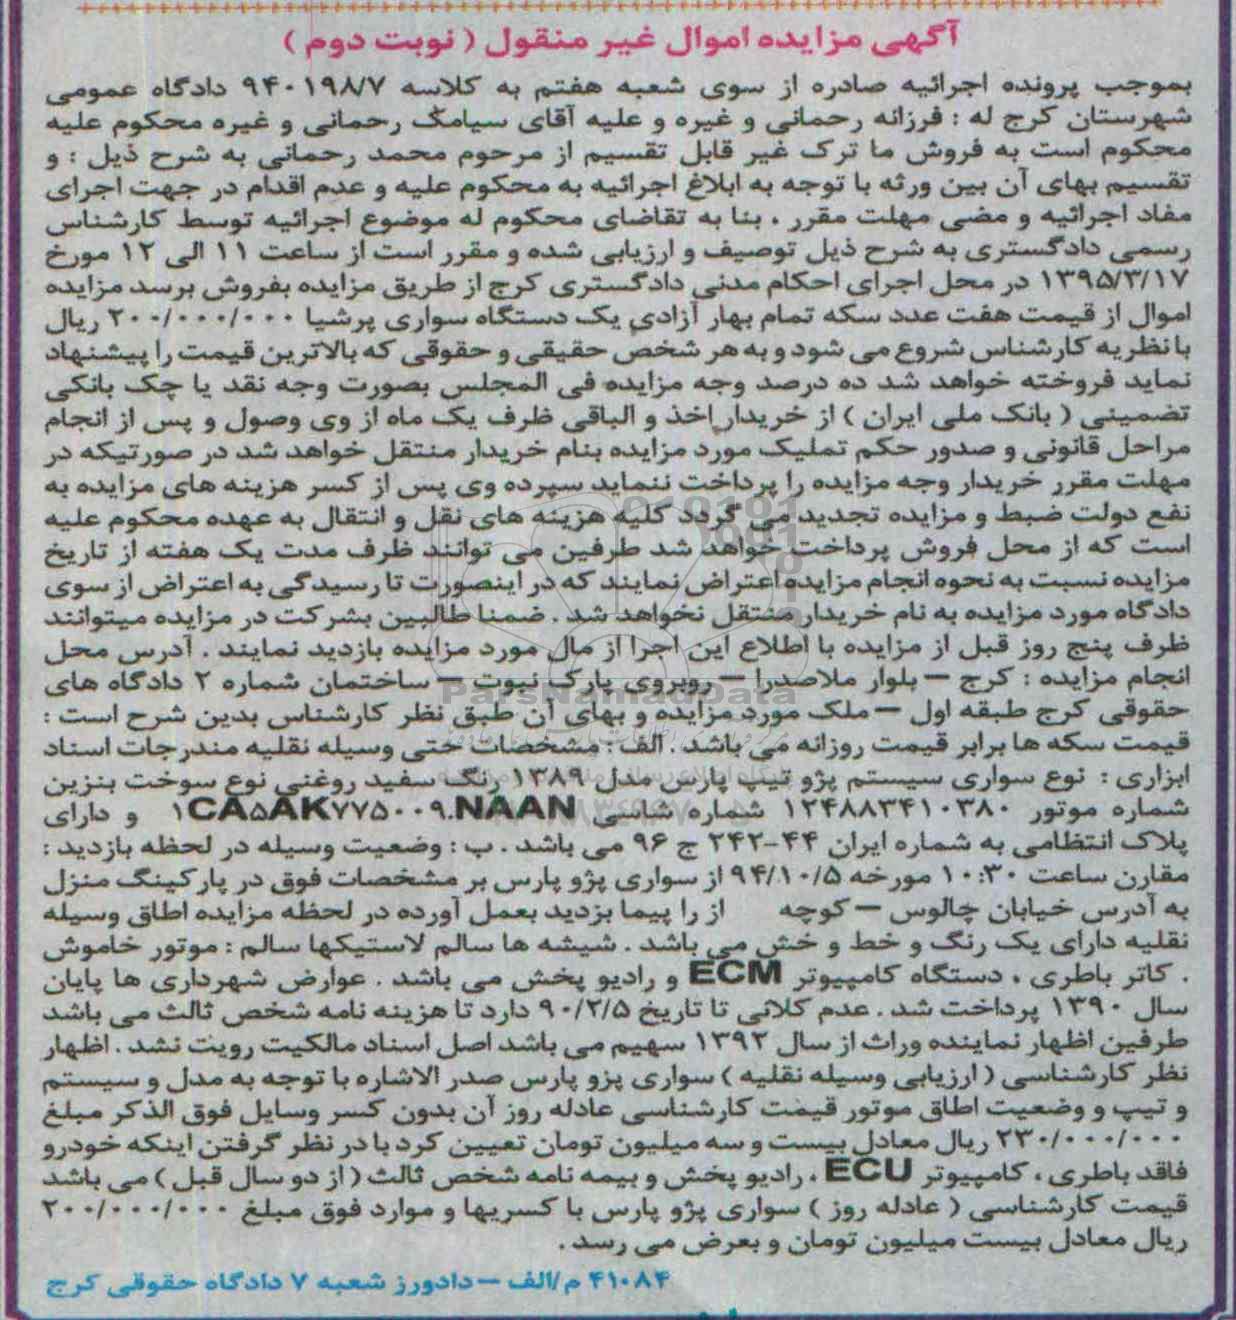 آگهی مزایده اموال غیر منقول ( نوبت دوم )
بموجب پرونده اجرائیه صادره از سوی شعبه هفتم به کلاسه ۹۴۰۱۹۸/۷ دادگاه عمومی
شهرستان کرج له : فرزانه رحمانی و غیره و علیه آقای سیامک رحمانی و غیره محکوم علیه
محکوم است به فروش ما ترک غیر قابل تقسیم از مرحوم محمد رحمانی به شرح ذیل : و
تقسیم بهای آن بین ورثه با توجه به ابلاغ اجرائیه به محکوم علیه و عدم اقدام در جهت اجرای
مفاد اجرائیه و مضی مهلت مقرر . بنا به تقاضای محکوم له موضوع اجرائیه توسط کارشناس
رسمی دادگستری به شرح ذیل توصیف و ارزیابی شده و مقرر است از ساعت ۱۱ الی ۱۲ مورخ
۱۳۹۵/۳/۱۷ در محل اجرای احکام مدنی دادگستری کرج از طریق مزایده بفروش برسد مزایده
اموال از قیمت هفت عدد سکه تمام بهار آزادی یک دستگاه سواری پرشیا ۲۰۰/۰۰۰/۰۰۰ ریال
با نظریه کارشناس شروع می شود و به هر شخص حقیقی و حقوقی که بالاترین قیمت را پیشنهاد
نماید فروخته خواهد شد ده درصد وجه مزایده فی المجلس بصورت وجه نقد یا چک بانکی
تضمینی ( بانک ملی ایران ) از خریدار اخذ و الباقی ظرف یک ماه از وی وصول و پس از انجام
مراحل قانونی و صدور حکم تملیک مورد مزایده بنام خریدار منتقل خواهد شد در صورتیکه در
مهلت مقرر خریدار وجه مزایده را پرداخت ننماید سپرده وی پس از کسر هزینه های مزایده به
نفع دولت ضبط و مزایده تجدید می گردد کلیه هزینه های نقل و انتقال به عهده محکوم علیه
است که از محل فروش پرداخت خواهد شد طرفین می توانند ظرف مدت یک هفته از تاریخ
مزایده نسبت به نحوه انجام مزایده اعتراض نمایند که در اینصورت تا رسیدگی به اعتراض از سوی
دادگاه مورد مزایده به نام خریدار منتقل نخواهد شد . ضمنا طالبین بشرکت در مزایده میتوانند
ظرف پنج روز قبل از مزایده با اطلاع این اجرا از مال مورد مزایده بازدید نمایند . آدرس محل
انجام مزایده : کرج – بلوار ملاصدرا – روبروی پارک نبوت – ساختمان شماره ۲ دادگاه های
ParsNamadData
حقوقی کرج طبقه اول – ملک مورد مزایده و بهای آن طبق نظر کارشناس بدین شرح است :
قیمت سکه ها برابر قیمت روزانه می باشد . الف : مشخصات ختی وسیله نقلیه مندرجات اسناد
ابزاری : نوع سواری سیستم پژو تیپ پارس مدل ۱۳۸۹ رنگ سفید روغنی نوع سوخت بنزین
شماره موتور ۱۲۴۸۸۳۴۱۰۳۸۰ شماره شاسی ۱CA۵AK۷۷۵۰۰۹.NAAN و دارای
پلاک انتظامی به شماره ایران ۴۴-۲۴۲ ج ۹۶ می باشد . ب : وضعیت وسیله در لحظه بازدید :
مقارن ساعت ۱۰:۳۰ مورخه ۹۴/۱۰/۵ از سواری پژو پارس بر مشخصات فوق در پارکینگ منزل
به آدرس خیابان چالوس – کوچه از را پیما بزدید بعمل آورده در لحظه مزایده اطاق وسیله
نقلیه دارای یک رنگ و خط و خش می باشد . شیشه ها سالم لاستیکها سالم : موتور خاموش
. کاتر باطری ، دستگاه کامپیوتر ECM و رادیو پخش می باشد . عوارض شهرداری ها پایان
سال ۱۳۹۰ پرداخت شد . عدم کلانی تا تاریخ ۹۰/۲/۵ دارد تا هزینه نامه شخص ثالث می باشد
طرفین اظهار نماینده وراث از سال ۱۳۹۲ سهیم می باشد اصل اسناد مالکیت رویت نشد . اظهار
نظر کارشناسی ( ارزیابی وسیله نقلیه ) سواری پزو پارس صدر الاشاره با توجه به مدل و سیستم
و تیپ و وضعیت اطاق موتور قیمت کارشناسی عادله روز آن بدون کسر وسایل فوق الذکر مبلغ
۲۳۰/۰۰۰/۰۰۰ ریال معادل بیست و سه میلیون تومان تعیین کرد با در نظر گرفتن اینکه خودرو
فاقد باطری ، کامپیوتر ECU ، رادیو پخش و بیمه نامه شخص ثالث ( از دو سال قبل ) می باشد
قیمت کارشناسی ( عادله روز ) سواری پژو پارس با کسریها و موارد فوق مبلغ ۲۰۰/۰۰۰/۰۰۰
ریال معادل بیست میلیون تومان و بعرض می رسد .
۴۱۰۸۴ م/الف – دادورز شعبه ۷ دادگاه حقوقی کرج